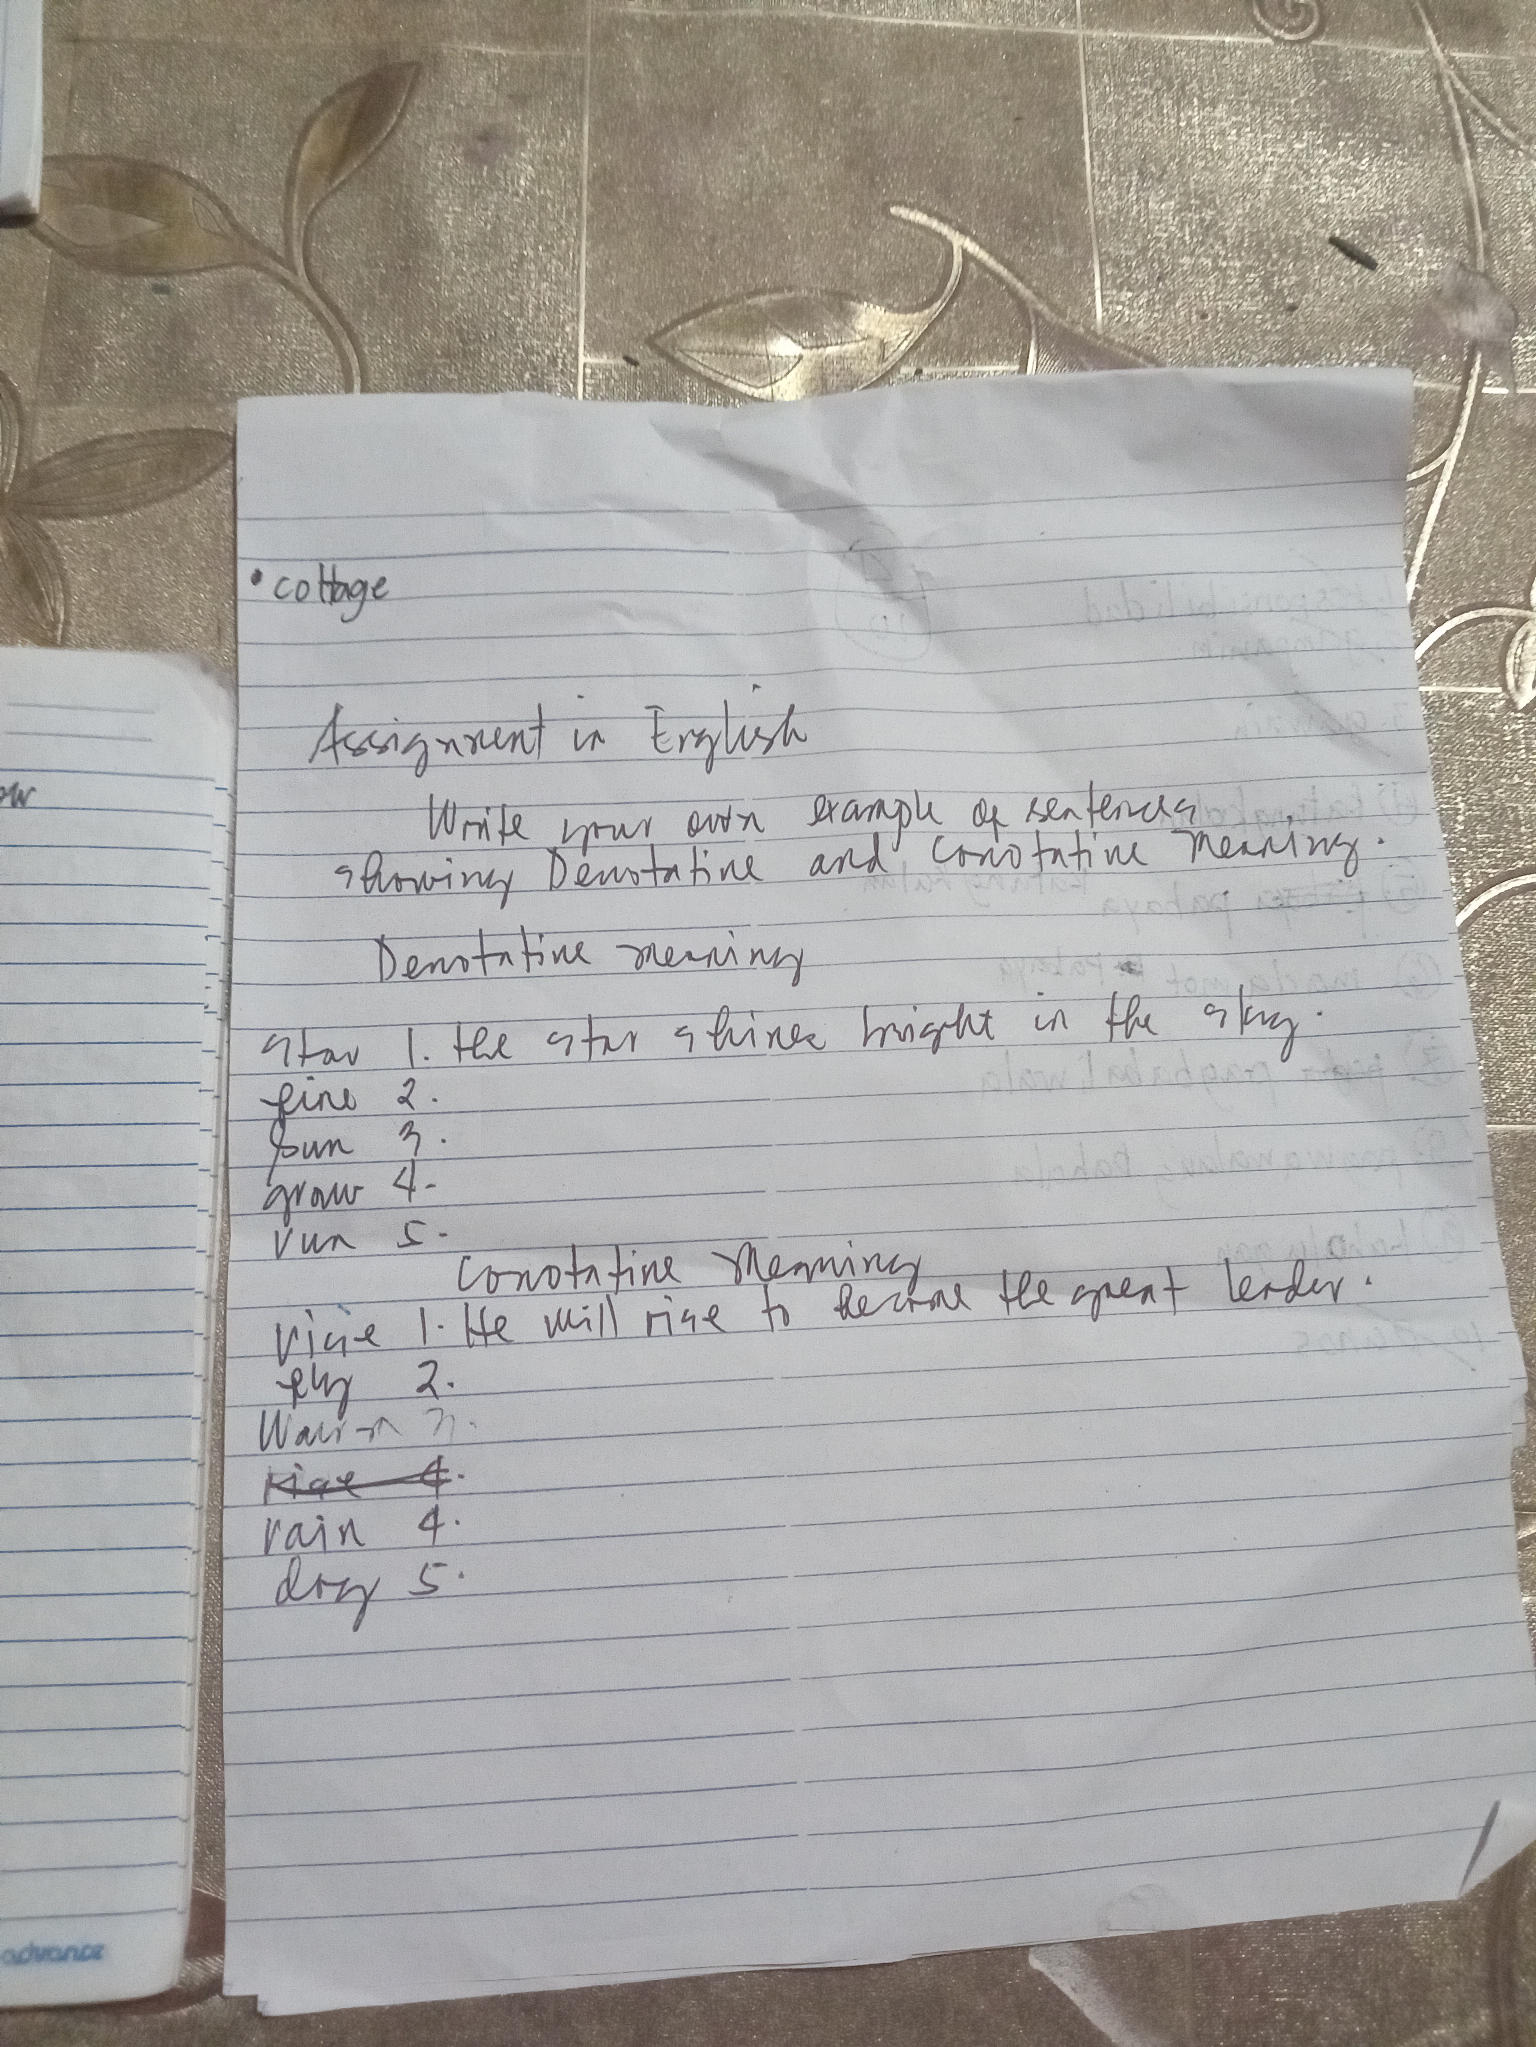 ow
advance
• cottage
Assignment in English
Write your own example of sentences
showing Denotative and Conotative Meaning.
Denotative meaning
star 1. the star shines bright in the sky.
fire 2.
sun 3.
grow 4-
run 5-
Conotative Meaning
rise 1. He will rise to become the great leader.
fly 2.
Warm 3.
rise 4.
rain 4.
dry 5.